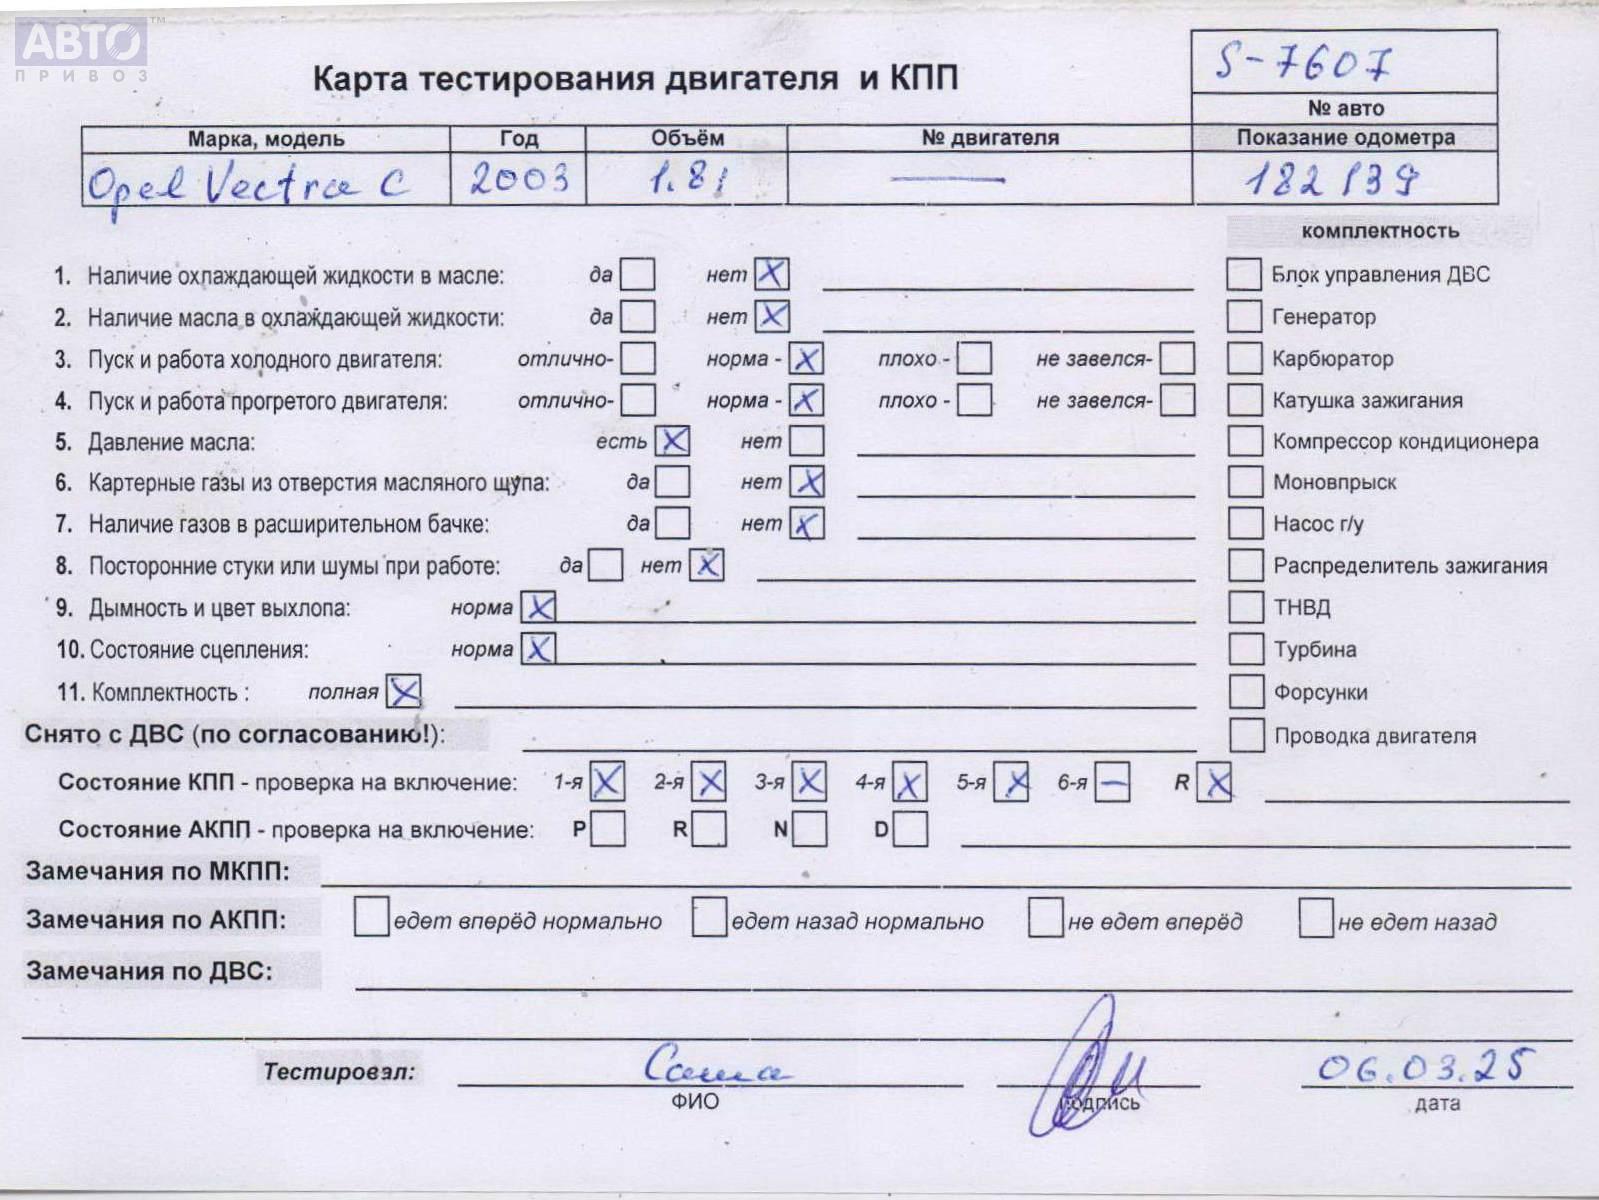 АВТО™
ПРИВОЗ
S-7607
Карта тестирования двигателя и КПП
№ авто
Марка, модель Год Объём № двигателя Показание одометра
Opel Vectra C 2003 1.8i — 182139
комплектность
1. Наличие охлаждающей жидкости в масле: да нет X Блок управления ДВС
2. Наличие масла в охлаждающей жидкости: да нет X Генератор
3. Пуск и работа холодного двигателя: отлично- норма - X плохо - не завелся- Карбюратор
4. Пуск и работа прогретого двигателя: отлично- норма - X плохо - не завелся- Катушка зажигания
5. Давление масла: есть X нет Компрессор кондиционера
6. Картерные газы из отверстия масляного щупа: да нет X Моновпрыск
7. Наличие газов в расширительном бачке: да нет X Насос г/у
8. Посторонние стуки или шумы при работе: да нет X Распределитель зажигания
9. Дымность и цвет выхлопа: норма X ТНВД
10. Состояние сцепления: норма X Турбина
11. Комплектность : полная X Форсунки
Снято с ДВС (по согласованию!): Проводка двигателя
Состояние КПП - проверка на включение: 1-я X 2-я X 3-я X 4-я X 5-я X 6-я — R X
Состояние АКПП - проверка на включение: P R N D
Замечания по МКПП:
Замечания по АКПП: едет вперёд нормально едет назад нормально не едет вперёд не едет назад
Замечания по ДВС:
Тестировал: Саша 06.03.25
ФИО подпись дата